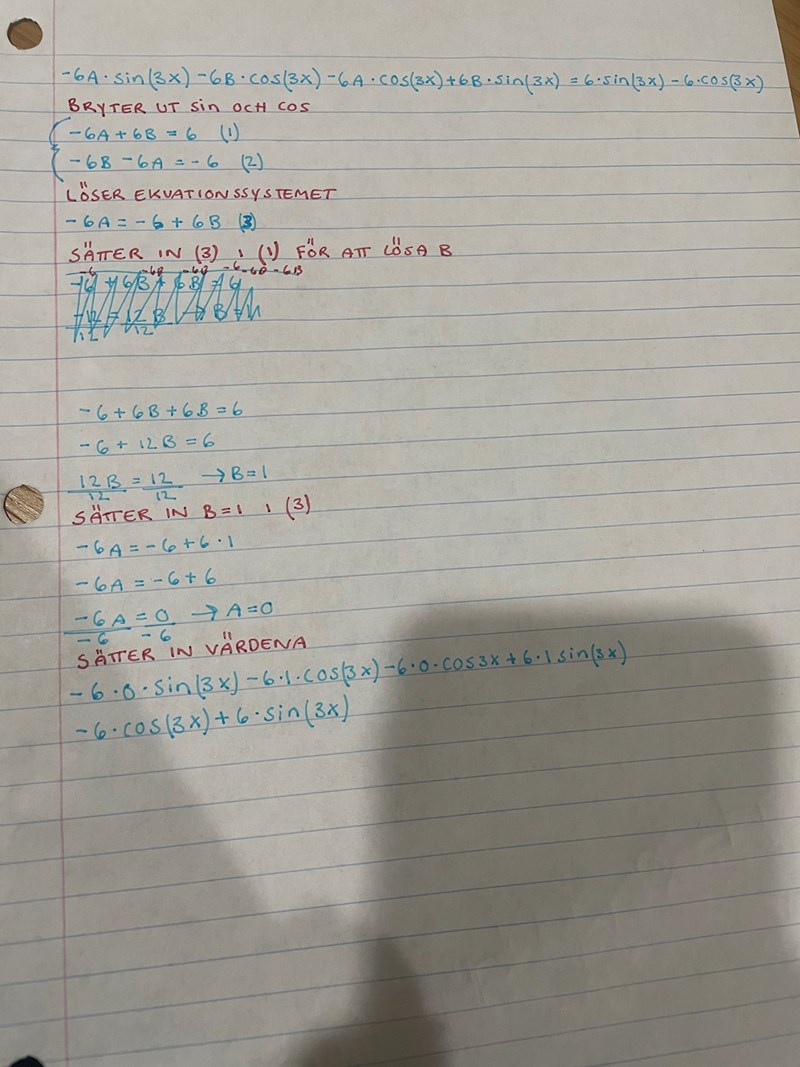 -6A·sin(3x) -6B·cos(3x) -6A·cos(3x)+6B·sin(3x) = 6·sin(3x) - 6·cos(3x)
BRYTER UT sin OCH cos
-6A+6B = 6 (1)
-6B -6A = -6 (2)
LÖSER EKVATIONSSYSTEMET
-6A = -6 + 6B (3)
SÄTTER IN (3) i (1) FÖR ATT LÖSA B
-6+6B+6B=6
-6 + 12B = 6
12B/12 = 12/12 → B=1
SÄTTER IN B=1 i (3)
-6A = -6+6·1
-6A = -6+6
-6A/-6 = 0/-6 → A=0
SÄTTER IN VÄRDENA
-6·0·sin(3x) -6·1·cos(3x) -6·0·cos3x + 6·1 sin(3x)
-6·cos(3x) + 6·sin(3x)